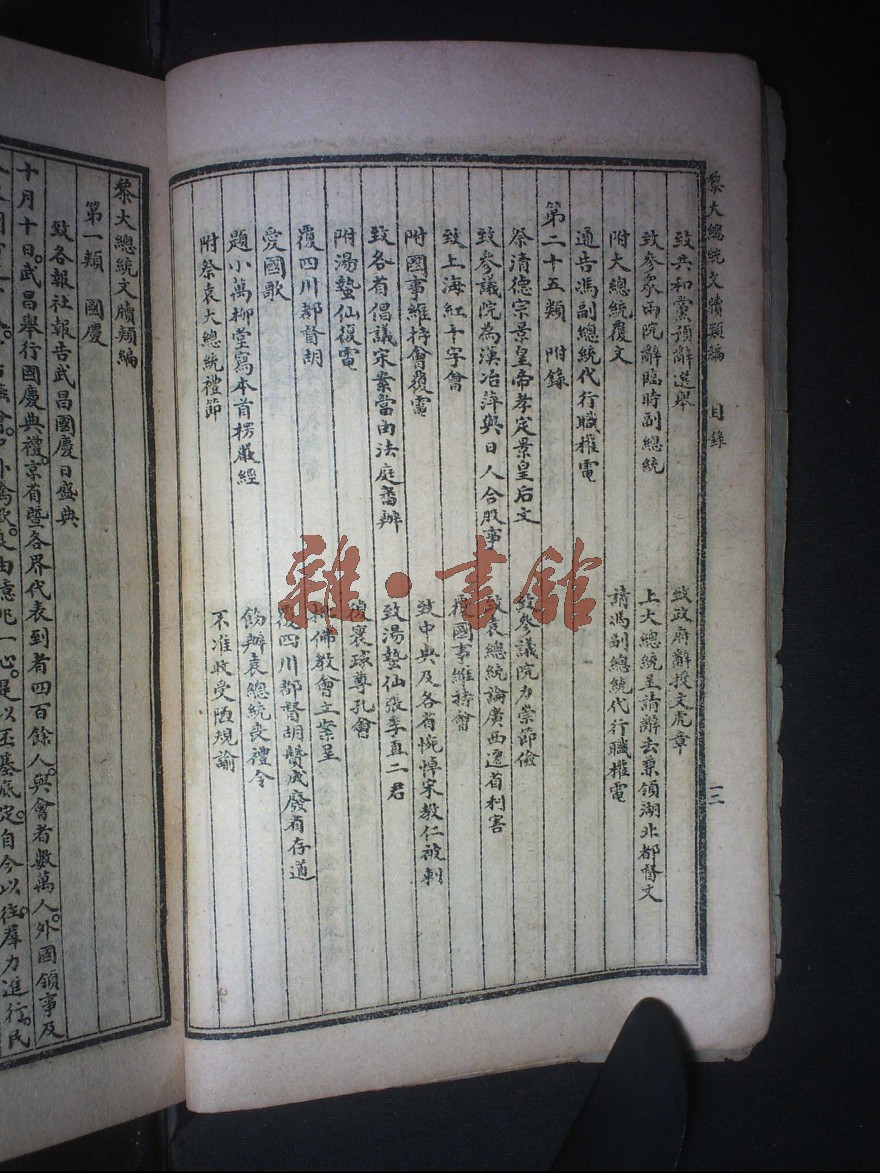 黎大總統文牘類編　目錄　三
致共和黨預辭選舉　致政府辭授文虎章
致參眾兩院辭臨時副總統　上大總統呈請辭去兼領湖北都督文
附大總統覆文　請馮副總統代行職權電
通告馮副總統代行職權電
第二十五類　附錄
祭清德宗景皇帝孝定景皇后文　致參議院力崇節儉
致參議院為漢冶萍與日人合股事　致袁總統論廣西遷省利害
致上海紅十字會　覆國事維持會
附國事維持會覆電　致中央及各省惋悼宋教仁被刺
致各省倡議宋案當由法庭審辦　致湯蟄仙張季直二君
附湯蟄仙復電　復寰球尊孔會
覆四川都督胡　佛教會立案呈
愛國歌　覆四川都督胡贊成廢省存道
題小萬柳堂寫本首楞嚴經　飭辦袁總統喪禮令
附祭袁大總統禮節　不准收受陋規諭
雜·書館
黎大總統文牘類編
第一類　國慶
致各報社報告武昌國慶日盛典
十月十日。武昌舉行國慶典禮。京省暨各界代表到者四百餘人。與會者數萬人。外國領事及
良由意兆一心。是以丕基底定。自今以往。羣力進行。民